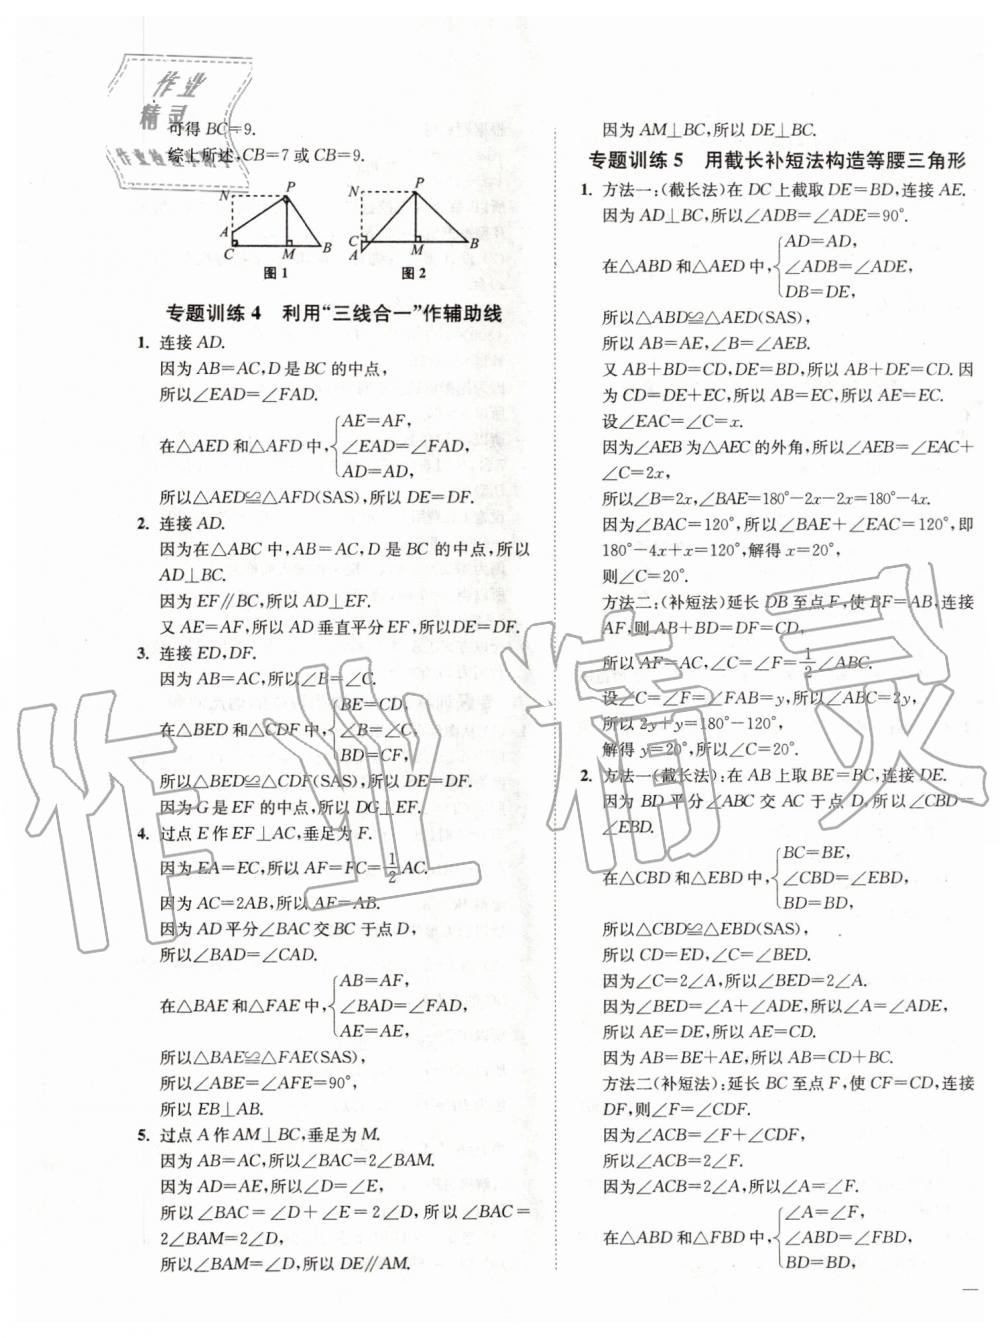 作业
精灵
可得 BC=9.
综上所述,CB=7 或 CB=9.
N P A C M B
图 1
N P C A M B
图 2
专题训练 4 利用“三线合一”作辅助线
1. 连接 AD.
因为 AB=AC,D 是 BC 的中点,
所以∠EAD=∠FAD.
在△AED 和△AFD 中,{AE=AF,
∠EAD=∠FAD,
AD=AD,
所以△AED≌△AFD(SAS),所以 DE=DF.
2. 连接 AD.
因为在△ABC 中,AB=AC,D 是 BC 的中点,所以
AD⊥BC.
因为 EF∥BC,所以 AD⊥EF.
又 AE=AF,所以 AD 垂直平分 EF,所以 DE=DF.
3. 连接 ED,DF.
因为 AB=AC,所以∠B=∠C.
在△BED 和△CDF 中,{BE=CD,
∠B=∠C,
BD=CF,
所以△BED≌△CDF(SAS),所以 DE=DF.
因为 G 是 EF 的中点,所以 DG⊥EF.
4. 过点 E 作 EF⊥AC,垂足为 F.
因为 EA=EC,所以 AF=FC=1/2 AC.
因为 AC=2AB,所以 AF=AB.
因为 AD 平分∠BAC 交 BC 于点 D,
所以∠BAD=∠CAD.
在△BAE 和△FAE 中,{AB=AF,
∠BAD=∠FAD,
AE=AE,
所以△BAE≌△FAE(SAS),
所以∠ABE=∠AFE=90°,
所以 EB⊥AB.
5. 过点 A 作 AM⊥BC,垂足为 M.
因为 AB=AC,所以∠BAC=2∠BAM.
因为 AD=AE,所以∠D=∠E,
所以∠BAC=∠D+∠E=2∠D,所以∠BAC=
2∠BAM=2∠D,
所以∠BAM=∠D,所以 DE∥AM.
因为 AM⊥BC,所以 DE⊥BC.
专题训练 5 用截长补短法构造等腰三角形
1. 方法一:(截长法)在 DC 上截取 DE=BD,连接 AE.
因为 AD⊥BC,所以∠ADB=∠ADE=90°.
在△ABD 和△AED 中,{AD=AD,
∠ADB=∠ADE,
DB=DE,
所以△ABD≌△AED(SAS),
所以 AB=AE,∠B=∠AEB.
又 AB+BD=CD,DE=BD,所以 AB+DE=CD. 因
为 CD=DE+EC,所以 AB=EC,所以 AE=EC.
设∠EAC=∠C=x.
因为∠AEB 为△AEC 的外角,所以∠AEB=∠EAC+
∠C=2x,
所以∠B=2x,∠BAE=180°-2x-2x=180°-4x.
因为∠BAC=120°,所以∠BAE+∠EAC=120°,即
180°-4x+x=120°,解得 x=20°,
则∠C=20°.
方法二:(补短法)延长 DB 至点 F,使 BF=AB,连接
AF,则 AB+BD=DF=CD,
所以 AF=AC,∠C=∠F=1/2∠ABC.
设∠C=∠F=∠FAB=y,所以∠ABC=2y,
所以 2y+y=180°-120°,
解得 y=20°,所以∠C=20°.
2. 方法一(截长法):在 AB 上取 BE=BC,连接 DE.
因为 BD 平分∠ABC 交 AC 于点 D,所以∠CBD=
∠EBD.
在△CBD 和△EBD 中,{BC=BE,
∠CBD=∠EBD,
BD=BD,
所以△CBD≌△EBD(SAS),
所以 CD=ED,∠C=∠BED.
因为∠C=2∠A,所以∠BED=2∠A.
因为∠BED=∠A+∠ADE,所以∠A=∠ADE,
所以 AE=DE,所以 AE=CD.
因为 AB=BE+AE,所以 AB=CD+BC.
方法二(补短法):延长 BC 至点 F,使 CF=CD,连接
DF,则∠F=∠CDF.
因为∠ACB=∠F+∠CDF,
所以∠ACB=2∠F.
因为∠ACB=2∠A,所以∠A=∠F.
在△ABD 和△FBD 中,{∠A=∠F,
∠ABD=∠FBD,
BD=BD,
作业精灵